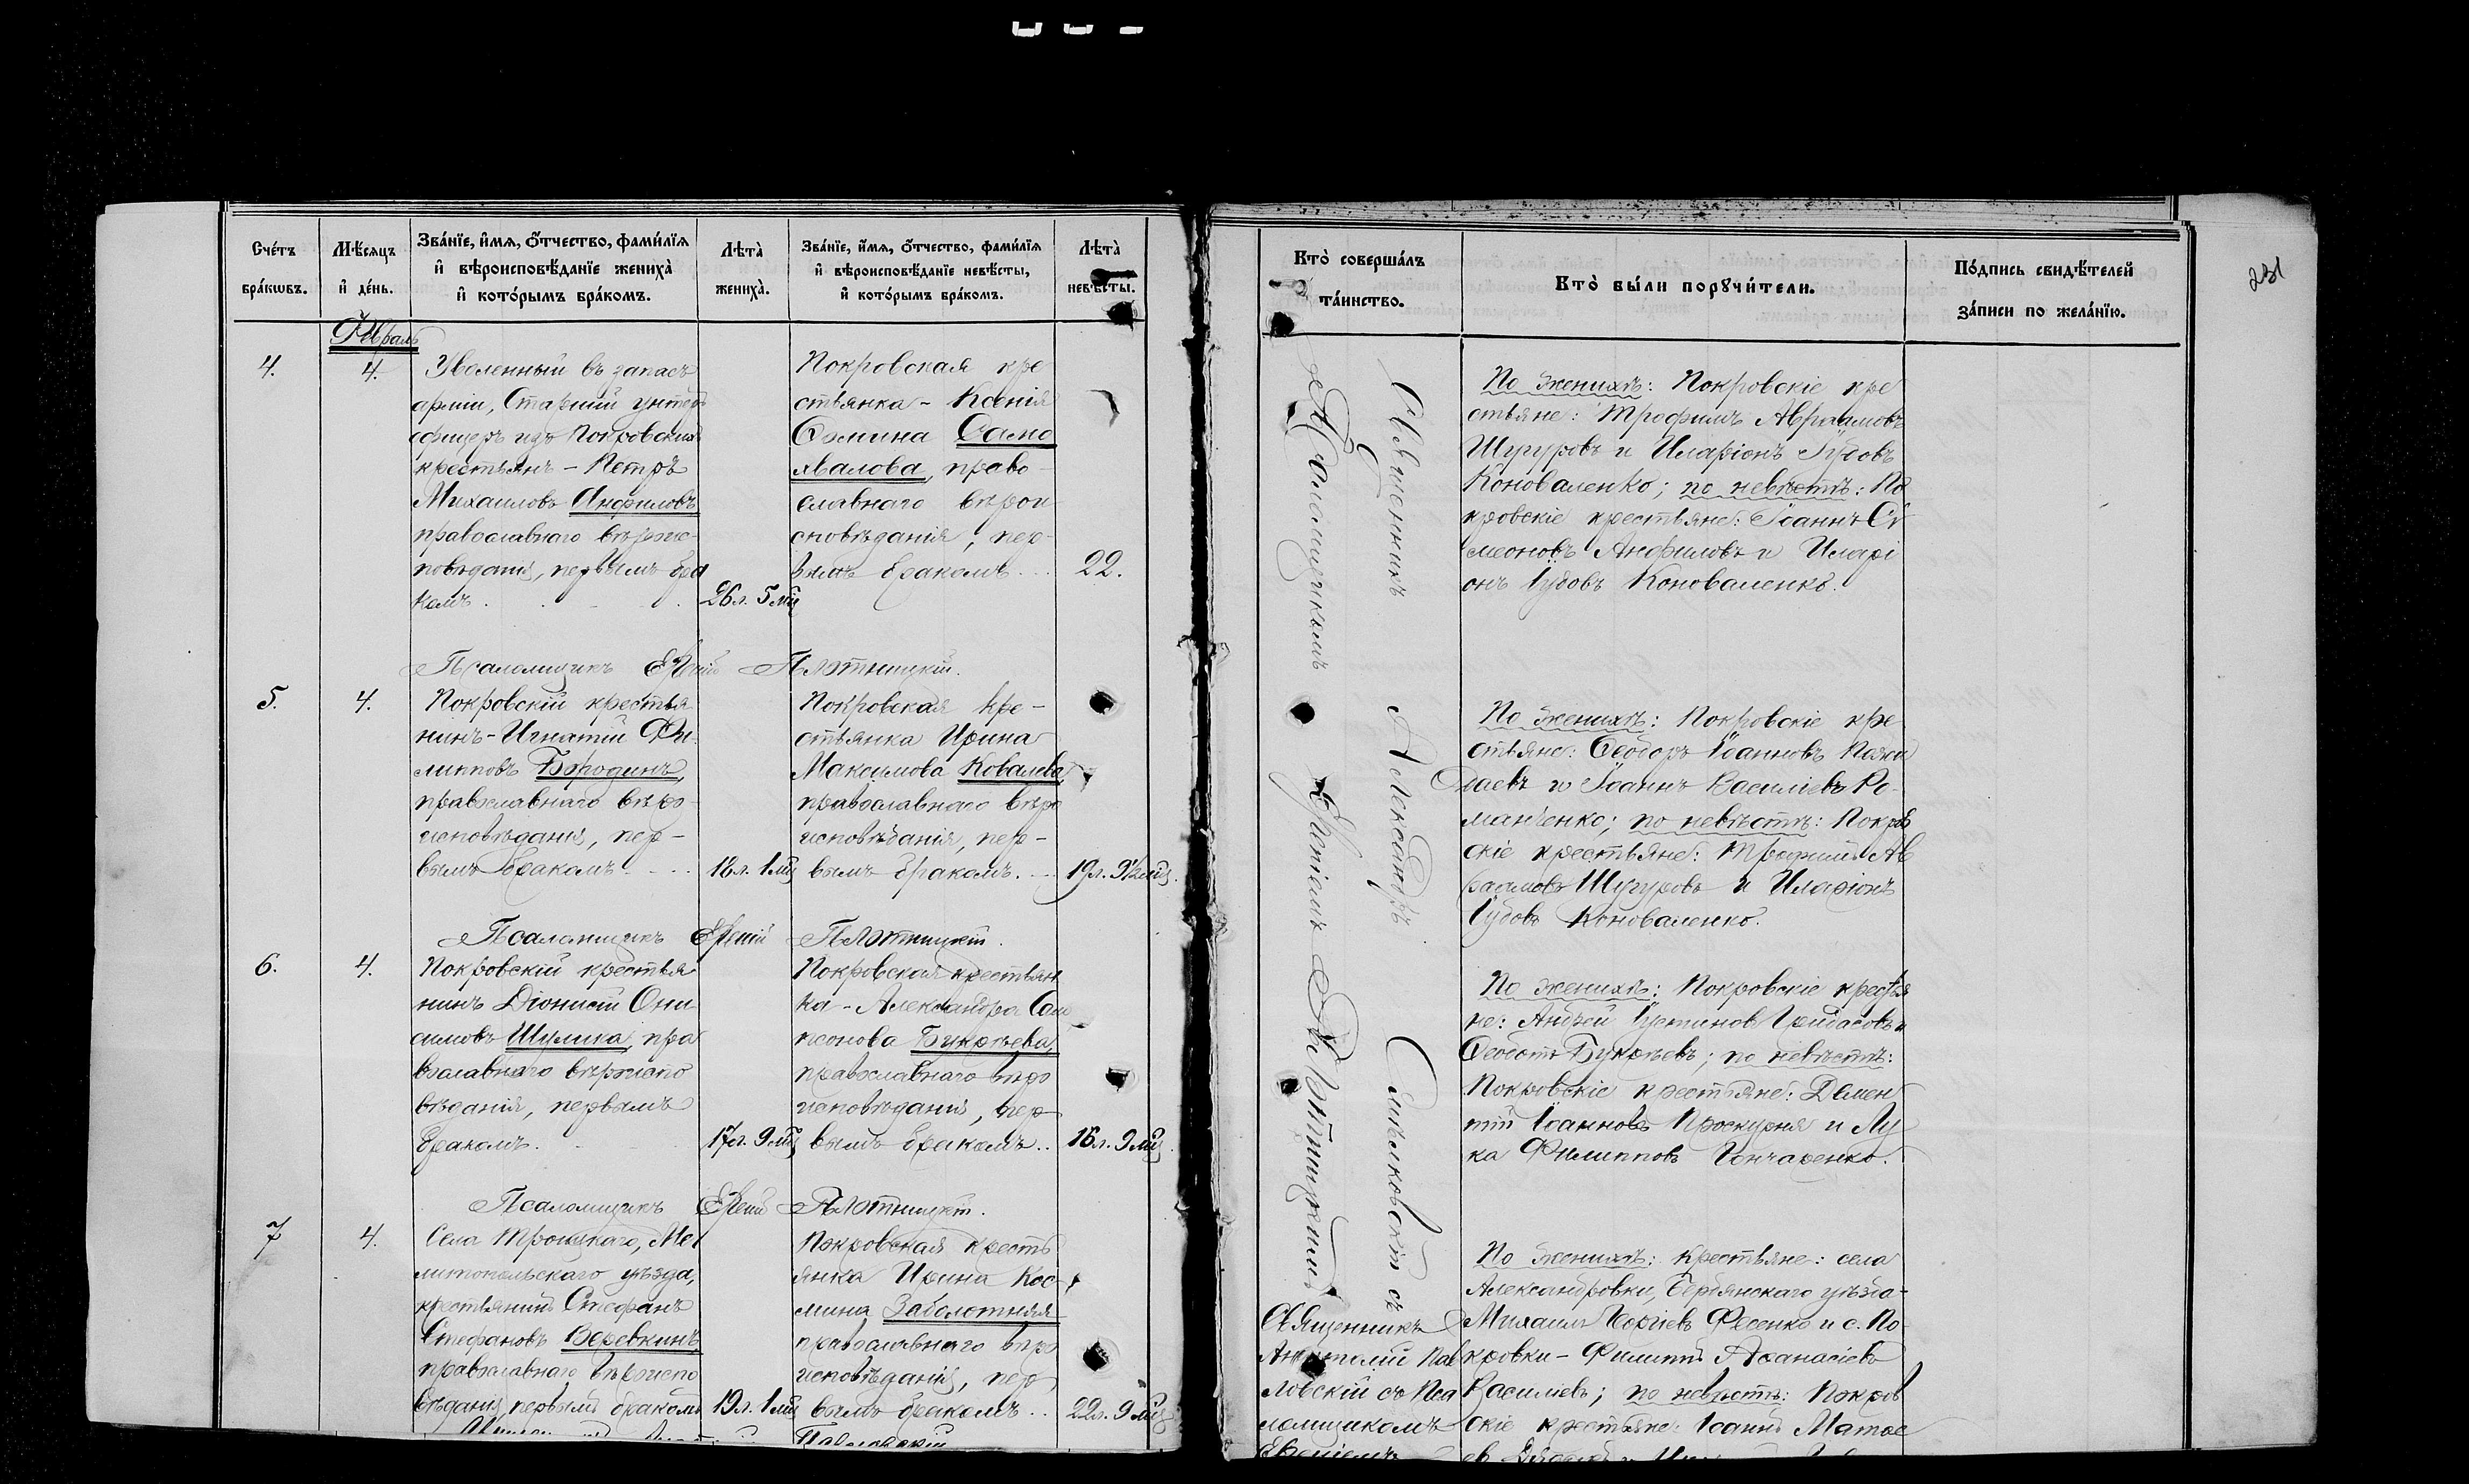 Счетъ
браковъ.
Мѣсяцъ
и день.
Званіе, имя, отчество, фамилія
и вѣроисповѣданіе жениха
и которымъ бракомъ.
Лѣта
жениха.
Званіе, имя, отчество, фамилія
и вѣроисповѣданіе невѣсты,
и которымъ бракомъ.
Лѣта
невѣсты.
Февраль
4.
4.
Уволенный въ запасъ
арміи, Старшій унтеръ
офицеръ изъ Покровскихъ
крестьянъ - Петръ
Михаиловъ Анфиловъ
православнаго вѣроис-
повѣданія, первымъ бра
комъ.
26 л. 5 мц
Покровская кре
стьянка - Ксенія
Само
валова, право-
славнаго вѣрои
сповѣданія, пер-
вымъ бракомъ...
22.
Псаломщикъ
5.
4.
Покровскій крестья
нинъ - Игнатій Фи-
липповъ Бородинъ,
православнаго вѣро-
исповѣданія, пер-
вымъ бракомъ
18 л. 1 мц
Покровская кре-
стьянка Ирина
Максимова Ковалева
православнаго вѣро
исповѣданія, пер-
вымъ бракомъ.
19 л. 9½ мц.
Псаломщикъ
6.
4.
Покровскій крестья
нинъ Діонисій Они
симовъ Шулика, пра
вославнаго вѣроиспо
вѣданія, первымъ
бракомъ.
17 л. 9 мц
Покровская крестьян
ка - Александра Сам
псонова
православнаго вѣро
исповѣданія, пер-
вымъ бракомъ..
16 л. 9 мц.
Псаломщикъ
7
4.
Села Троицкаго, Ме
литопольскаго уѣзда,
крестьянинъ Стефанъ
Стефановъ Веревкинъ
православнаго вѣроиспо
вѣданія, первымъ бракомъ
19 л. 1 мц
Покровская кресть
янка Ирина Кос-
мина Заболотняя
православнаго вѣро
исповѣданія, пер
вымъ бракомъ..
22 л. 9 мц
Кто совершалъ
таинство.
Кто были поручители.
Подпись свидѣтелей
записи по желанію.
231
Священникъ Александръ съ
Псаломщикомъ
По женихѣ: Покровскіе кре
стьяне: Трофимъ Авраамовъ
Шугуровъ и Иларіонъ
Коноваленко; по невѣстѣ: По
кровскіе крестьяне: Іоаннъ Си
меоновъ Анфиловъ и Иларі
онъ Коноваленко.
По женихѣ: Покровскіе кре
стьяне: Ѳеодоръ Іоанновъ
и Іоаннъ Василіевъ Ро-
манченко; по невѣстѣ: Покров
скіе крестьяне: Трофимъ Ав
раамовъ Шугуровъ и Иларіонъ
Коноваленко.
По женихѣ: Покровскіе крестья
не: Андрей Іустиновъ
по невѣстѣ:
Покровскіе крестьяне: Демен
тій Іоанновъ Проскурня и Лу
ка Филипповъ Гончаренко.
По женихѣ: крестьяне: села
Александровки, Бердянскаго уѣзда -
Михаилъ Георгіевъ Фесенко и с. По-
кровки - Филиппъ Аѳанасіевъ
Василіевъ; по невѣстѣ: Покров
скіе крестьяне: Іоаннъ Матѳе
Священникъ
Анатолій Пав
ловскій съ Пса
ломщикомъ